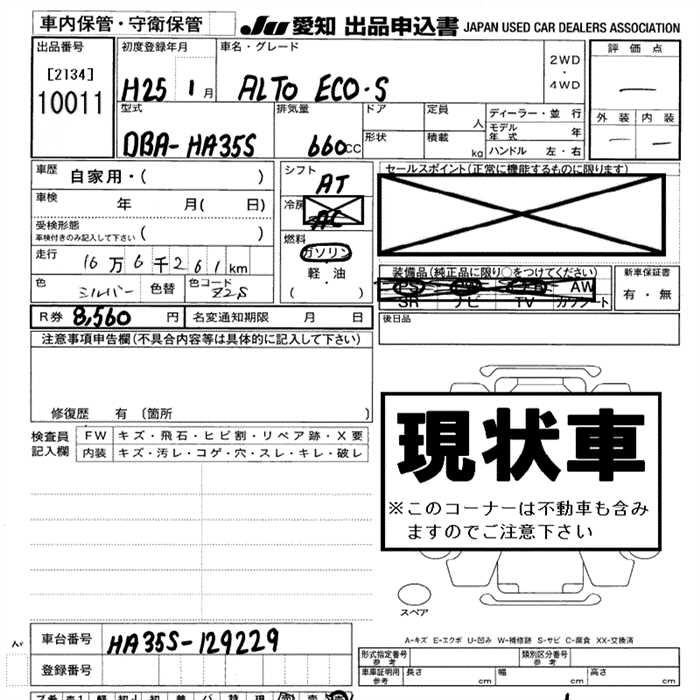 車内保管・守衛保管
JU 愛知 出品申込書 JAPAN USED CAR DEALERS ASSOCIATION
出品番号
[2134]
10011
初度登録年月
H25 1月
車名・グレード
ALTO ECO-S
2WD
・
4WD
評価点
—
外装 内装
— —
型式
DBA-HA35S
排気量
660CC
ドア
定員
人
形状
積載
kg
ディーラー・並行
モデル年式 年
ハンドル 左・右
車歴 自家用・( )
車検 年 月( 日)
受検形態
車検付きのみ記入して下さい ( )
走行 16万6千261km
色 シルバー 色替 色コード Z2S
シフト
AT
冷房
AC
燃料
ガソリン
軽・油
( )
セールスポイント(正常に機能するものに限ります)
装備品(純正品に限り○をつけてください)
PS AW
SR ナビ TV カワシート
新車保証書
有・無
R券 8,560円 名変通知期限 月 日
後日品
注意事項申告欄(不具合内容等は具体的に記入して下さい)
修復歴 有 〔箇所 〕
検査員記入欄
FW キズ・飛石・ヒビ割・リペア跡・X要
内装 キズ・汚レ・コゲ・穴・スレ・キレ・破レ
現状車
※このコーナーは不動車も含み
ますのでご注意下さい
スペア
A-キズ E-エクボ U-凹み W-補修跡 S-サビ C-腐食 XX-交換済
車台番号 HA35S-129229
登録番号
形式指定番号 参考
類別区分番号 参考
車庫証明用 参考 長さ cm 幅 cm 高さ cm